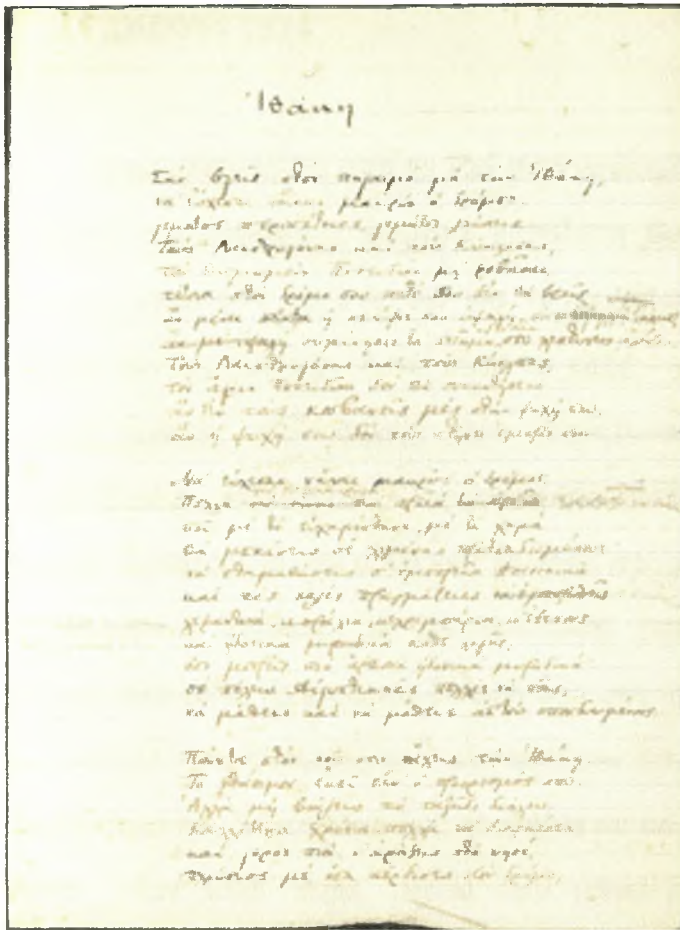 Ἰθάκη
Σὰν βγεῖς στὸν πηγαιμὸ γιὰ τὴν Ἰθάκη,
νὰ εὔχεσαι νἆναι μακρὺς ὁ δρόμος,
γεμάτος περιπέτειες, γεμάτος γνώσεις.
Τοὺς Λαιστρυγόνας καὶ τοὺς Κύκλωπας,
τὸν θυμωμένο Ποσειδῶνα μὴ φοβᾶσαι,
τέτοια στὸν δρόμο σου ποτέ σου δὲν θὰ βρεῖς,
ἂν μένει ἡ σκέψις σου
συγκίνησις
Τοὺς Λαιστρυγόνας καὶ τοὺς Κύκλωπας,
τὸν ἄγριο Ποσειδῶνα δὲν θὰ συναντήσεις
ἂν δὲν τοὺς κουβανεῖς μὲς στὴν ψυχή σου,
ἂν ἡ ψυχή σου δὲν τοὺς στήνει ἐμπρός σου.
Νὰ εὔχεσαι νἆναι μακρὺς ὁ δρόμος.
Πολλὰ
ποῦ μὲ τί εὐχαρίστησι, μὲ τί χαρὰ
θὰ μπαίνεις σὲ λιμένας πρωτοειδωμένους
νὰ σταματήσεις σ' ἐμπορεῖα Φοινικικὰ
καὶ τὲς καλὲς πραγμάτειες ν' ἀποκτήσεις
καὶ ἡδονικὰ μυρωδικὰ κάθε λογῆς,
ὅσο μπορεῖς πιὸ ἄφθονα ἡδονικὰ μυρωδικὰ
σὲ πόλεις Αἰγυπτιακὲς πολλὲς νὰ πᾶς,
νὰ μάθεις καὶ νὰ μάθεις ἀπ' τοὺς σπουδασμένους.
Πάντα στὸν νοῦ σου νἄχεις τὴν Ἰθάκη.
Τὸ φθάσιμον ἐκεῖ εἶν' ὁ προορισμός σου.
Ἀλλὰ μὴ βιάζεις τὸ ταξεῖδι διόλου.
Καλλίτερα χρόνια πολλὰ νὰ διαρκέσει
καὶ γέρος πιὰ ν' ἀράξεις στὸ νησί,
πλούσιος μὲ ὅσα κέρδισες στὸν δρόμο,